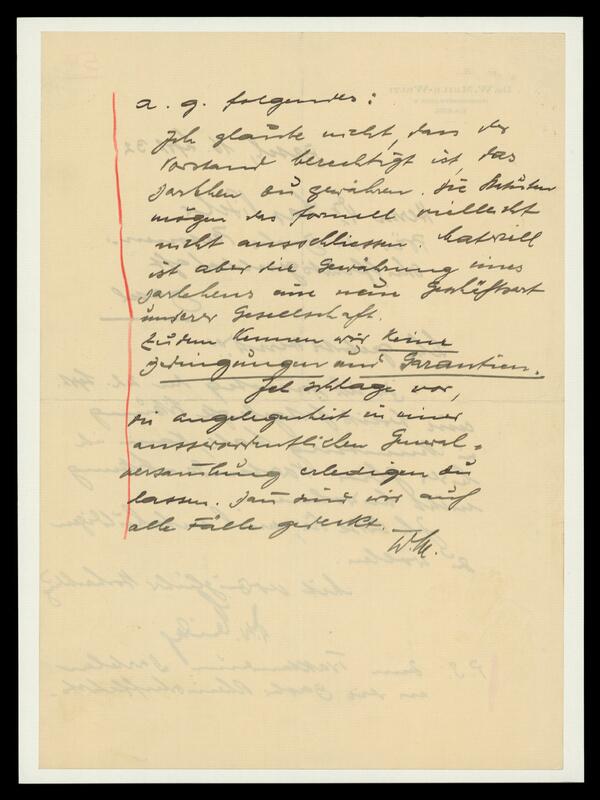 a. g. folgendes:
Ich glaube nicht, dass der
Vorstand berechtigt ist, das
Darlehen zu gewähren. Die Statuten
mögen das formell vielleicht
nicht ausschliessen. Materiell
ist aber die Gewährung eines
Darlehens eine neue Geschäftsart
unserer Gesellschaft.
Zudem kennen wir keine
Bedingungen und Garantien.
Ich schlage vor,
die Angelegenheit in einer
ausserordentlichen General-
versammlung erledigen zu
lassen. Dann sind wir auf
alle Fälle gedeckt.
W.M.